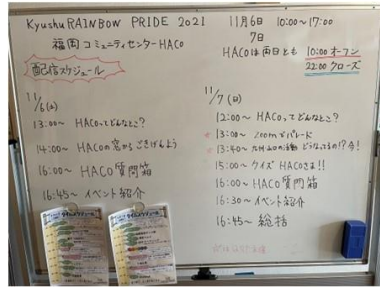 Kyushu RAINBOW PRIDE 2021
11月6日 10:00〜17:00
7日
福岡コミュニティセンターHACO
HACOは両日とも 10:00 オープン
22:00 クローズ
配信スケジュール
11/6(土)
13:00〜 HACOってどんなとこ?
14:00〜 HACOの窓からごきげんよう
16:00〜 HACO質問箱
16:45〜 イベント紹介
11/7(日)
12:00〜 HACOってどんなとこ?
13:00〜 Zoomでパレード
13:40〜 どうなってるの!?今!
15:00〜 クイズ HACOさま!!
16:00〜 HACO質問箱
16:30〜 イベント紹介
16:45〜 総括